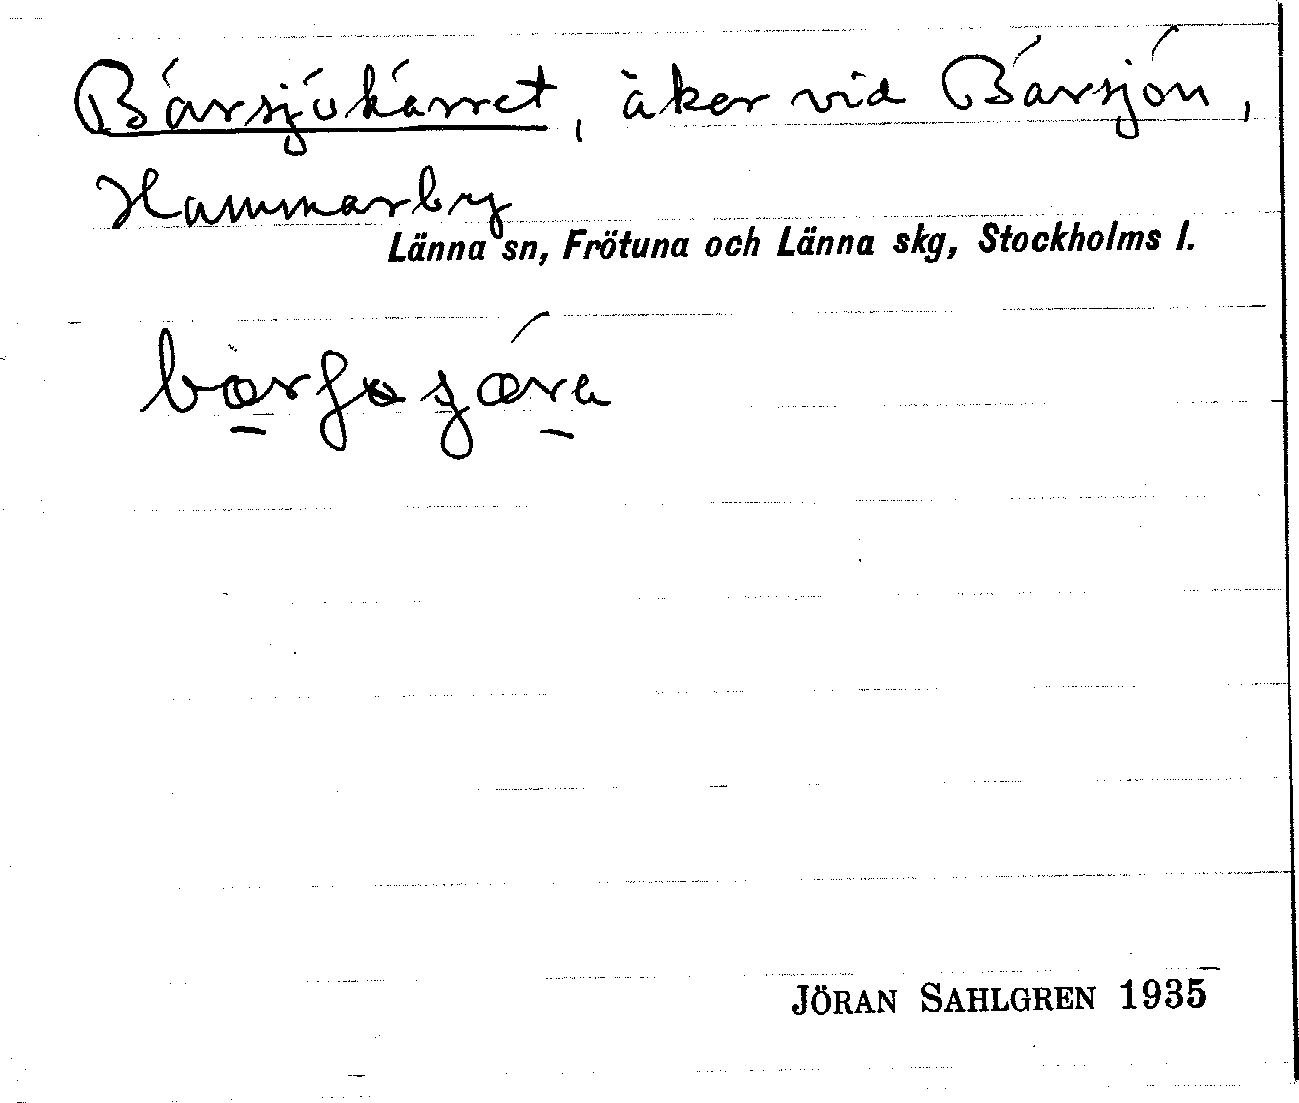 Bärsjökärret, åker vid Bärsjön,
Hammarby
Länna sn, Frötuna och Länna skg, Stockholms l.
JÖRAN SAHLGREN 1935